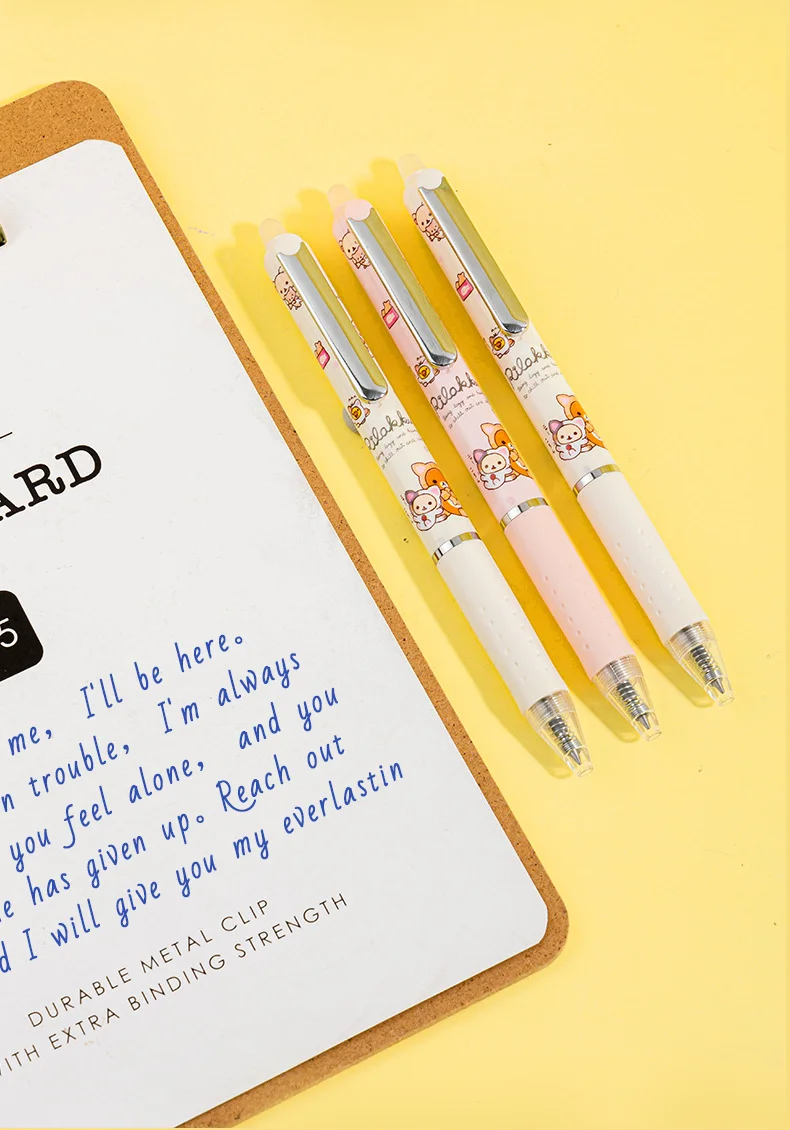 ARD
5
me, I'll be here。
n trouble, I'm always
you feel alone, and you
e has given up。 Reach out
d I will give you my everlastin
DURABLE METAL CLIP
WITH EXTRA BINDING STRENGTH
Rilakk
Rilakk
Rilakk